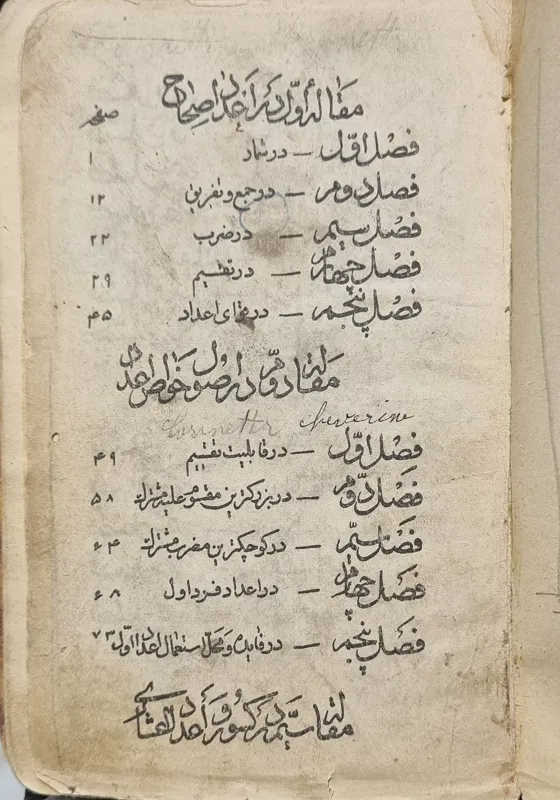 مقالهٔ اوّل در اعداد صحاح
صفحه
فصل اوّل — در شمار ۱
فصل دوم — در جمع و تفریق ۱۲
فصل سیم — در ضرب ۲۲
فصل چهارم — در تقسیم ۲۹
فصل پنجم — در قوای اعداد ۴۵
مقالهٔ دوّم در اصول و خواص اعداد
Corinette Cheverine
فصل اوّل — در قابلیت تقسیم ۴۹
فصل دوّم — در بزرکترین مقسوم علیه مشترک ۵۸
فصل سیّم — در کوچکترین مضرب مشترک ۶۴
فصل چهارم — در اعداد فرد اول ۶۸
فصل پنجم — در فایده و محل استعمال اعداد اوّل ۷۳
مقالهٔ سیّم در کسور و اعداد اعشاری